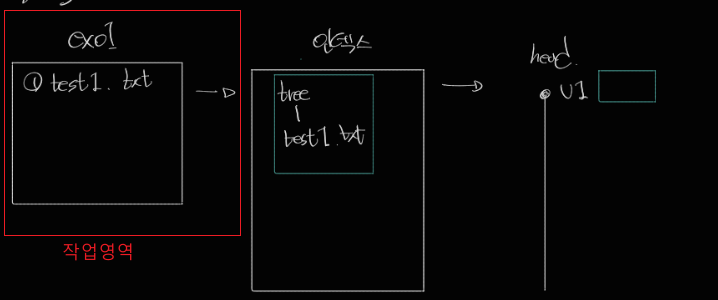 ex01
① test1.txt
작업영역
인덱스
tree
test1.txt
head.
v1